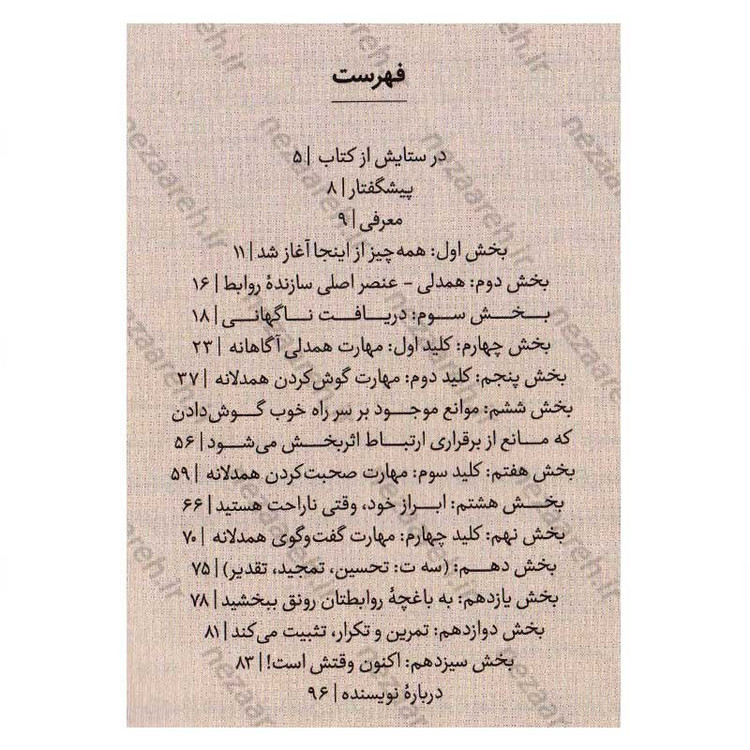 فهرست
در ستایش از کتاب | ۵
پیشگفتار | ۸
معرفی | ۹
بخش اول: همه‌چیز از اینجا آغاز شد | ۱۱
بخش دوم: همدلی - عنصر اصلی سازندهٔ روابط | ۱۶
بخش سوم: دریافت ناگهانی | ۱۸
بخش چهارم: کلید اول: مهارت همدلی آگاهانه | ۲۳
بخش پنجم: کلید دوم: مهارت گوش‌کردن همدلانه | ۳۷
بخش ششم: موانع موجود بر سر راه خوب گوش‌دادن
که مانع از برقراری ارتباط اثربخش می‌شود | ۵۶
بخش هفتم: کلید سوم: مهارت صحبت‌کردن همدلانه | ۵۹
بخش هشتم: ابراز خود، وقتی ناراحت هستید | ۶۶
بخش نهم: کلید چهارم: مهارت گفت‌وگوی همدلانه | ۷۰
بخش دهم: (سه ت: تحسین، تمجید، تقدیر) | ۷۵
بخش یازدهم: به باغچهٔ روابطتان رونق ببخشید | ۷۸
بخش دوازدهم: تمرین و تکرار، تثبیت می‌کند | ۸۱
بخش سیزدهم: اکنون وقتش است! | ۸۳
دربارهٔ نویسنده | ۹۶
nezaareh.ir